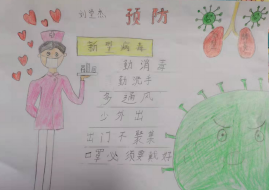 预防
新型病毒
勤消毒
勤洗手
多通风
少外出
出门不聚集
口罩必须要戴好